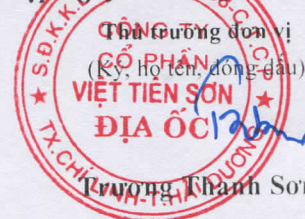 Thủ trưởng đơn vị
(Ký, họ tên, đóng dấu)
S.Đ.K.K.D
C.T.C.P
CÔNG TY
CỔ PHẦN
VIỆT TIÊN SƠN
ĐỊA ỐC
TX.CHÍ LINH-T.HẢI DƯƠNG
Trương Thanh Sơn